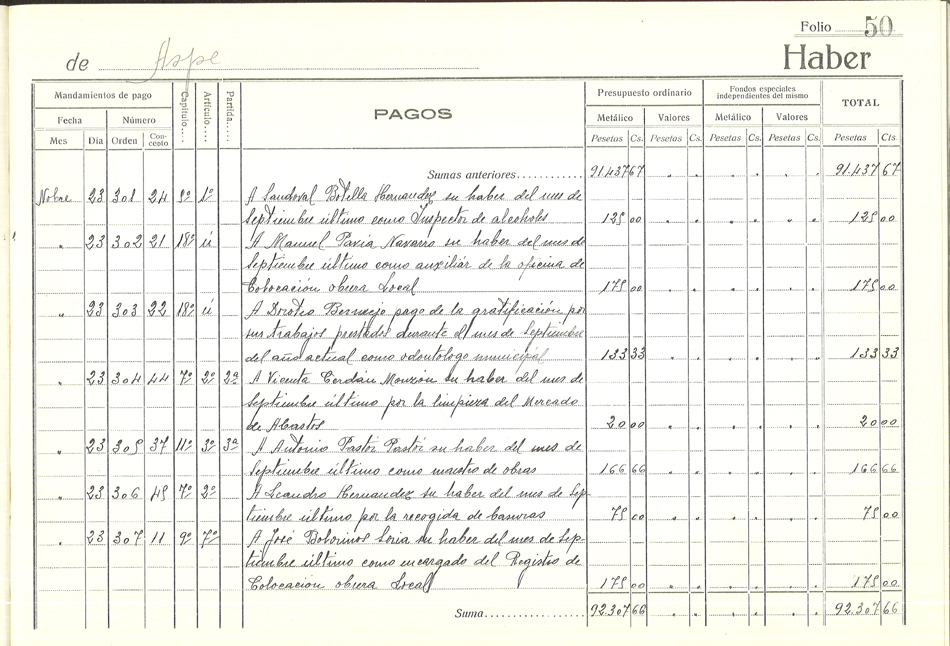 Folio 50
de Aspe Haber
Mandamientos de pago Capítulo Artículo Partida PAGOS Presupuesto ordinario Fondos especiales independientes del mismo TOTAL
Fecha Número Metálico Valores Metálico Valores
Mes Día Orden Concepto Pesetas Cs. Pesetas Cs. Pesetas Cs. Pesetas Cs. Pesetas Cts.
Sumas anteriores 91.437 67 91.437 67
Nobre 23 301 24 9º 1º A Sandoval Botella Hernandez su haber del mes de
Septiembre último como Inspector de alcoholes 125 00 125 00
" 23 302 21 18º ú A Manuel Pavia Navarro su haber del mes de
Septiembre último como auxiliár de la oficina de
Colocación obrera Local 175 00 175 00
" 23 303 22 18º ú A Dorotéo Bermejo pago de la gratificación por
sus trabajos prestados durante el mes de Septiembre
del año actual como odontólogo municipal 133 33 133 33
" 23 304 44 7º 2º 2ª A Vicenta Cerdán Monzón su haber del mes de
Septiembre último por la limpieza del Mercado
de Abastos 20 00 20 00
" 23 305 37 11º 3º 3ª A Antonio Pastór Pastór su haber del mes de
Septiembre último como maestro de obras 166 66 166 66
" 23 306 45 7º 2º A Leandro Hernandez su haber del mes de Sep-
tiembre último por la recogida de basuras 75 00 75 00
" 23 307 11 9º 7º A José Botorinos Soria su haber del mes de Sep-
tiembre último como encargado del Registro de
Colocación obrera Local 175 00 175 00
Suma 92.307 66 92.307 66